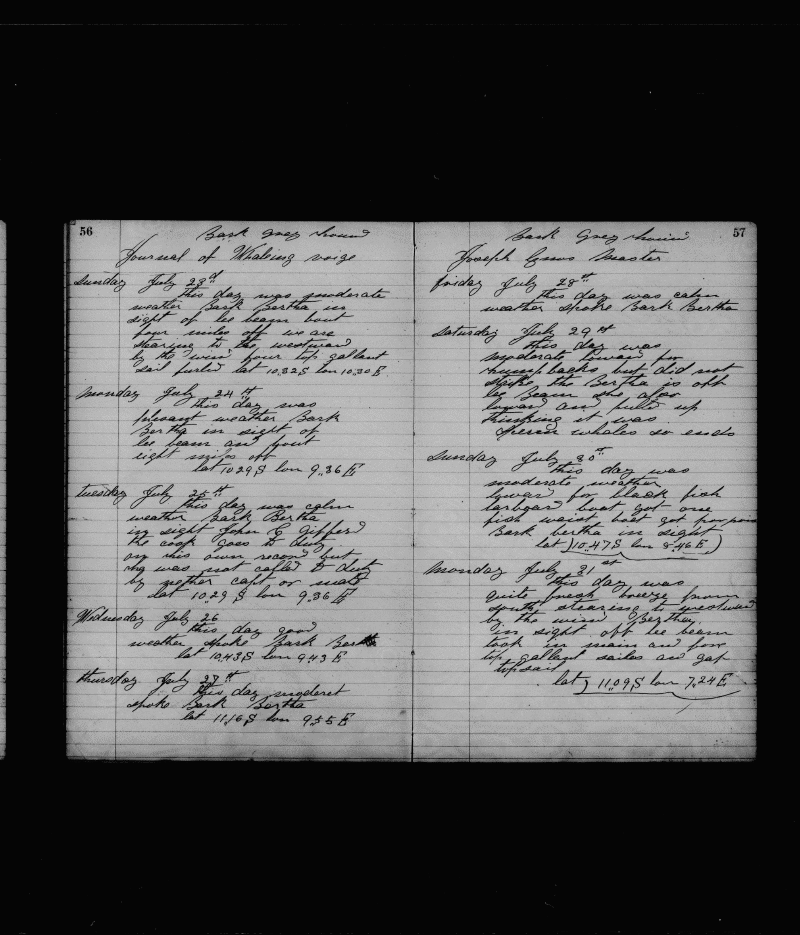 56
Bark Grey hound
Journal of Whaleing voige
Sunday July 23rd
this day was moderate
weather Bark Bertha in
sight of lee beam bout
four miles off we are
stearing to the westward
by the wind four top gallant
sail furled lat 10,32 S lon 10,30 E.
Monday July 24th
this day was
plesant weather Bark
Bertha in sight of
lee beam and bout
eight miles off
lat 10 29 S lon 9,,36 E
tuesday July 25th
this day was calm
weather Bark Bertha
in sight John C Gifford
the cook goes to duty
on his own recon but
was not called to duty
by nether capt or mate
lat 10,,29 S lon 9,,36 E
Wednesday July 26
this day good
weather spoke Bark Bertha
lat 10,,43 S lon 9,,43 E
thursday July 27th
this day moderet
spoke Bark Bertha
lat 11,,16 S lon 9,,55 E
57
Bark Grey hound
Joseph Master
friday July 28th
this day was calm
weather spoke Bark Bertha
Saturday July 29th
this day was
moderate loward for
humpbacks but did not
strike the Bertha is off
lee Beam she also
loward and pulld up
thinking it was
sperm whales so ends
Sunday July 30th
this day was
moderate weather
lowar for black fish
larboard boat got one
fish waist boat got
Bark bertha in sight
lat 10,,47 S lon 8,,46 E
Monday July 31st
this day was
quite fresh breeze from
south stearing to westward
by the wind Bertha
in sight off lee beam
took in main and fore
top gallant sailes and gaf
topsail
lat 11,,09 S lon 7,,24 E